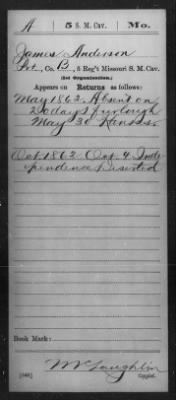 A 5 S. M. Cav. Mo.
James Anderson
Pvt., Co. B, 5 Reg't Missouri S. M. Cav.
(1st Organization.)
Appears on Returns as follows:
May 1862. Absent on
20 days furlough
May 30 Kansas.
Oct. 1862 Oct. 4 Inde
pendence Deserted
Book Mark:
McLaughlin
Copyist.